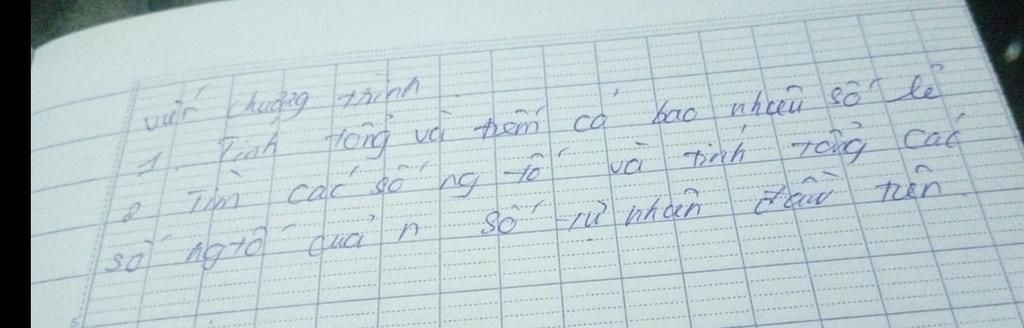 viết chương trình
1. Tính tổng và đếm có bao nhiêu số lẻ
2 Tìm các số ng tố và tính tổng các
số ng tố của n số tự nhiên đầu tiên